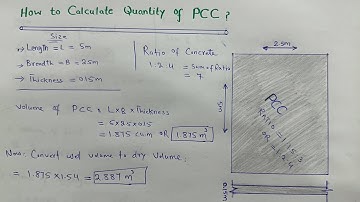 How to Calculate Quantity of PCC ?
Size
→ Length = L = 5m
→ Breadth = B = 2.5m
→ Thickness = 0.15m
Ratio of Concrete
1:2:4 = Sum of Ratio
= 7
Volume of PCC = L×B×Thickness
= 5×2.5×0.15
= 1.875 cu.m OR 1.875 m³
Now: Convert wet volume to dry volume;
= 1.875×1.54 = 2.887 m³
2.5m
5m
PCC
RATIO = 1:1.5:3
OR = 1:2:4